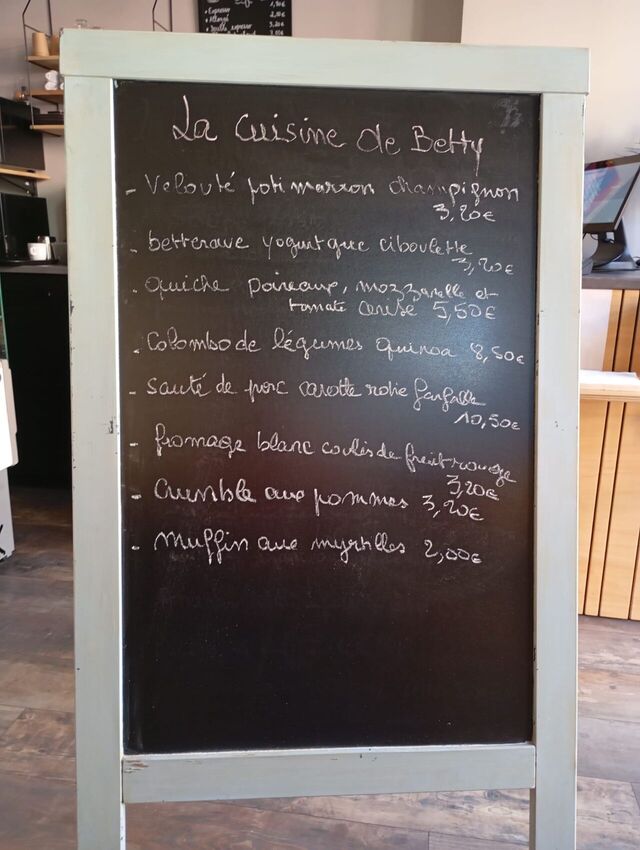 La Cuisine de Betty
- Velouté potimarron champignon
3,20€
- betterave yogurt grec ciboulette
3,20€
- quiche poireaux, mozzarelle et
tomate cerise 5,50€
- Colombo de légumes quinoa 8,50€
- sauté de porc carotte rotie farfalle
10,50€
- fromage blanc coulis de fruit rouge
3,20€
- Crumble aux pommes 3,20€
- muffin aux myrtilles 2,00€